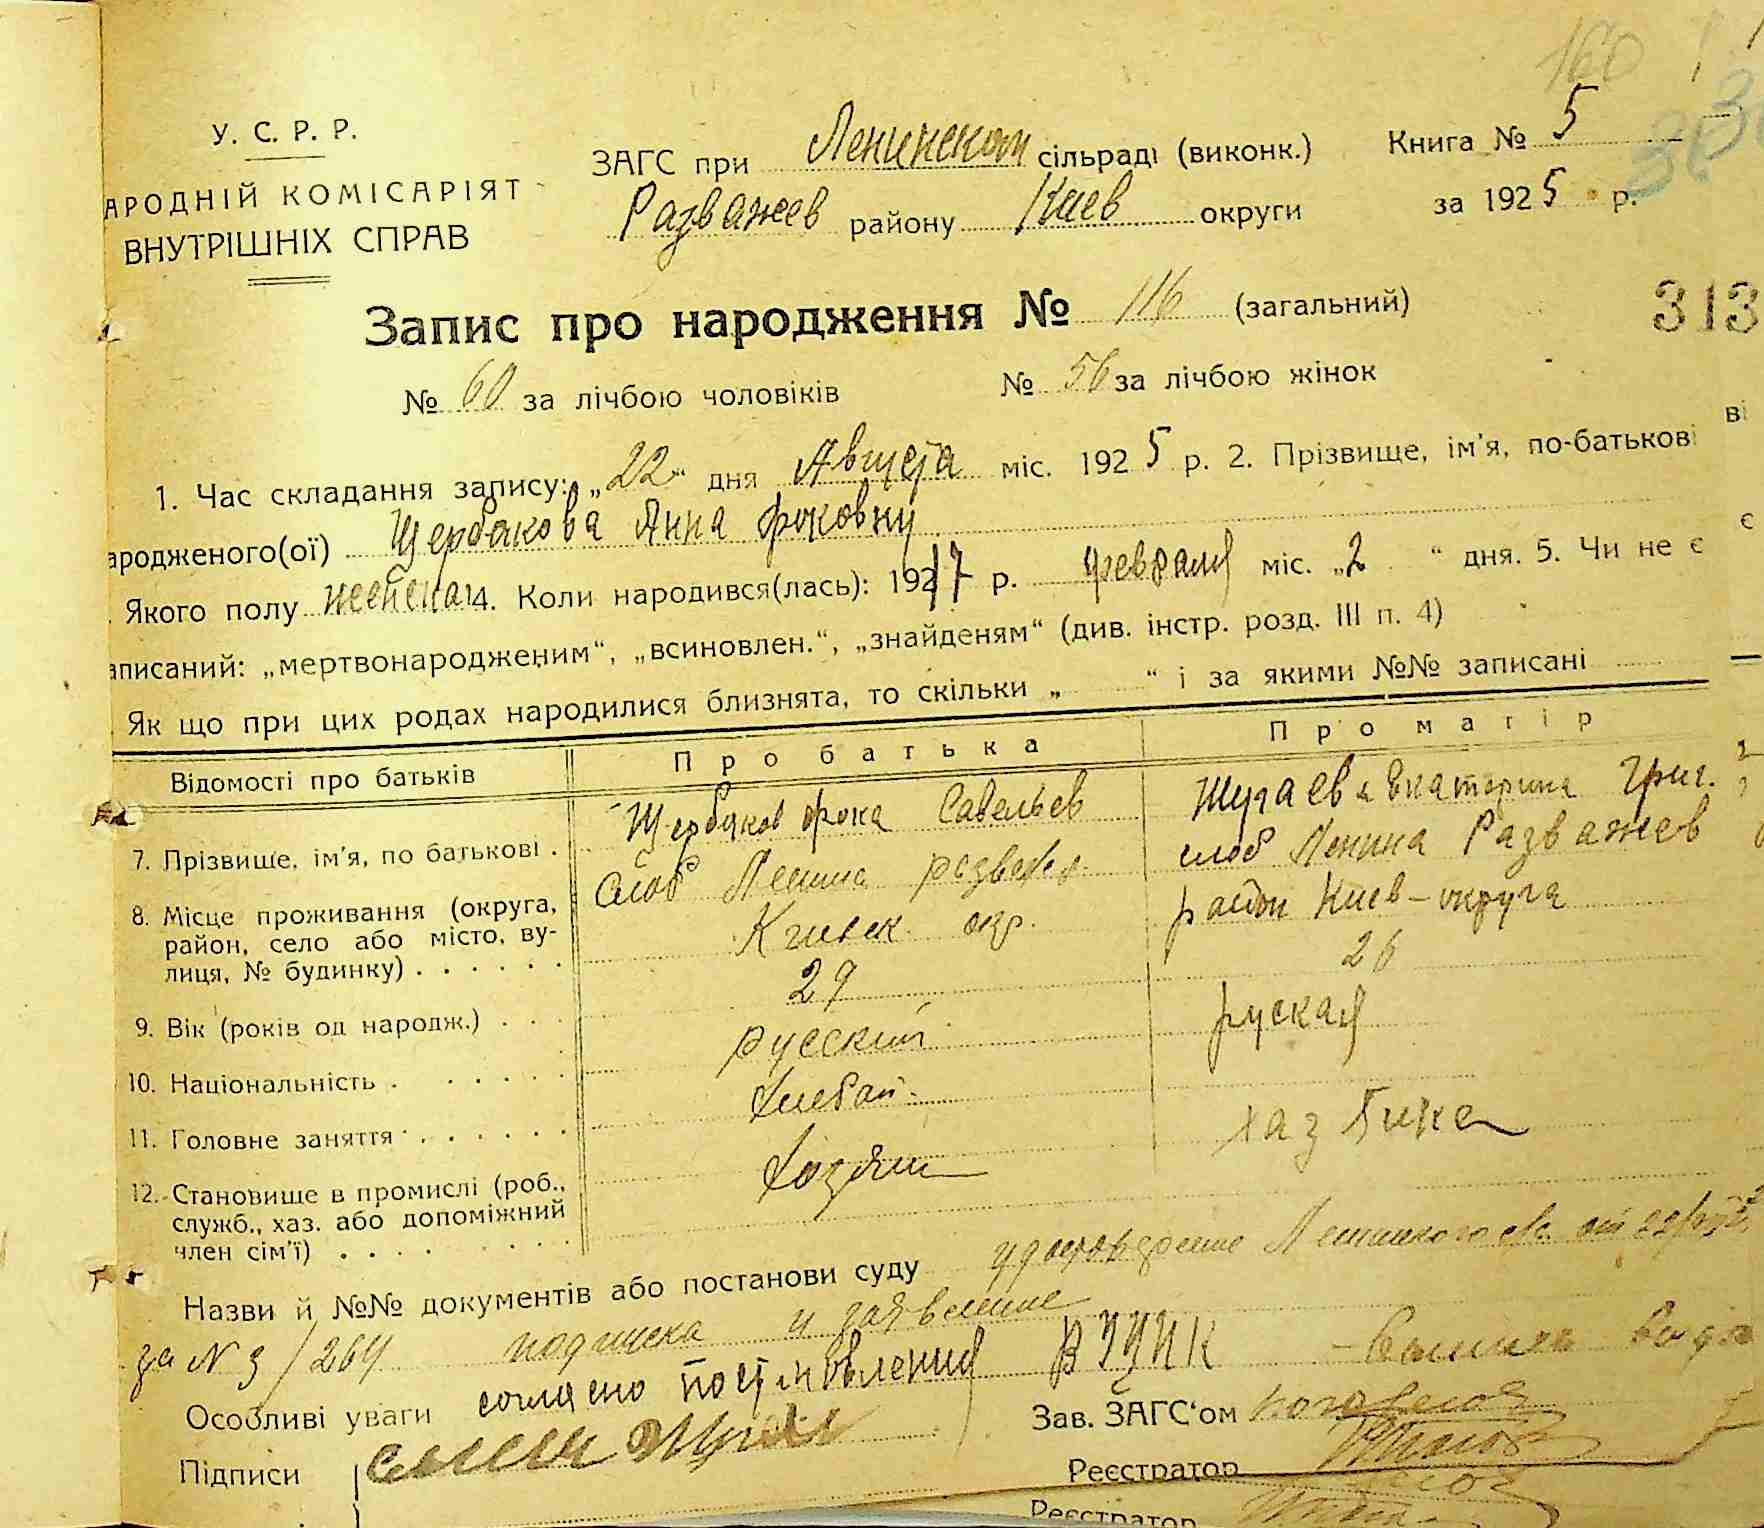 160
У. С. Р. Р.
АРОДНІЙ КОМІСАРІЯТ
ВНУТРІШНІХ СПРАВ
ЗАГС при Ленинском сільраді (виконк.)
Книга № 5
Разважев району Киев округи
за 1925 р.
Запис про народження № 116 (загальний)
313
№ 60 за лічбою чоловіків № 56 за лічбою жінок
1. Час складання запису: „22“ дня Августа міс. 1925 р. 2. Прізвище, ім'я, по-батькові
ародженого(ої) Щербакова Анна Фоковну
Якого полу женская 4. Коли народився(лась): 1917 р. февраля міс. „2“ дня. 5. Чи не є
аписаний: „мертвонародженим“, „всиновлен.“, „знайденям“ (див. інстр. розд. III п. 4)
Як що при цих родах народилися близнята, то скільки „ “ і за якими №№ записані
Відомості про батьків Про батька Про матір
7. Прізвище, ім'я, по батькові . Щербаков Фока Савельев Екатерина Григ.
8. Місце проживання (округа, район, село або місто, вулиця, № будинку) . . . . . .
Слоб Ленина
Киевск окр.
слоб Ленина Разважев
район Киев-округа
9. Вік (років од народж.) . . . 29 26
10. Національність . . . . . . русский руская
11. Головне заняття . . . . . .
12. Становище в промислі (роб., служб., хаз. або допоміжний член сім'ї) . . . . . . . .
Назви й №№ документів або постанови суду удостоверение
за N 3/264 подписка и заявление
Особливі уваги согласно постановления ВУЦИК
Зав. ЗАГС'ом
Підписи
Реєстратор
Реєстратор